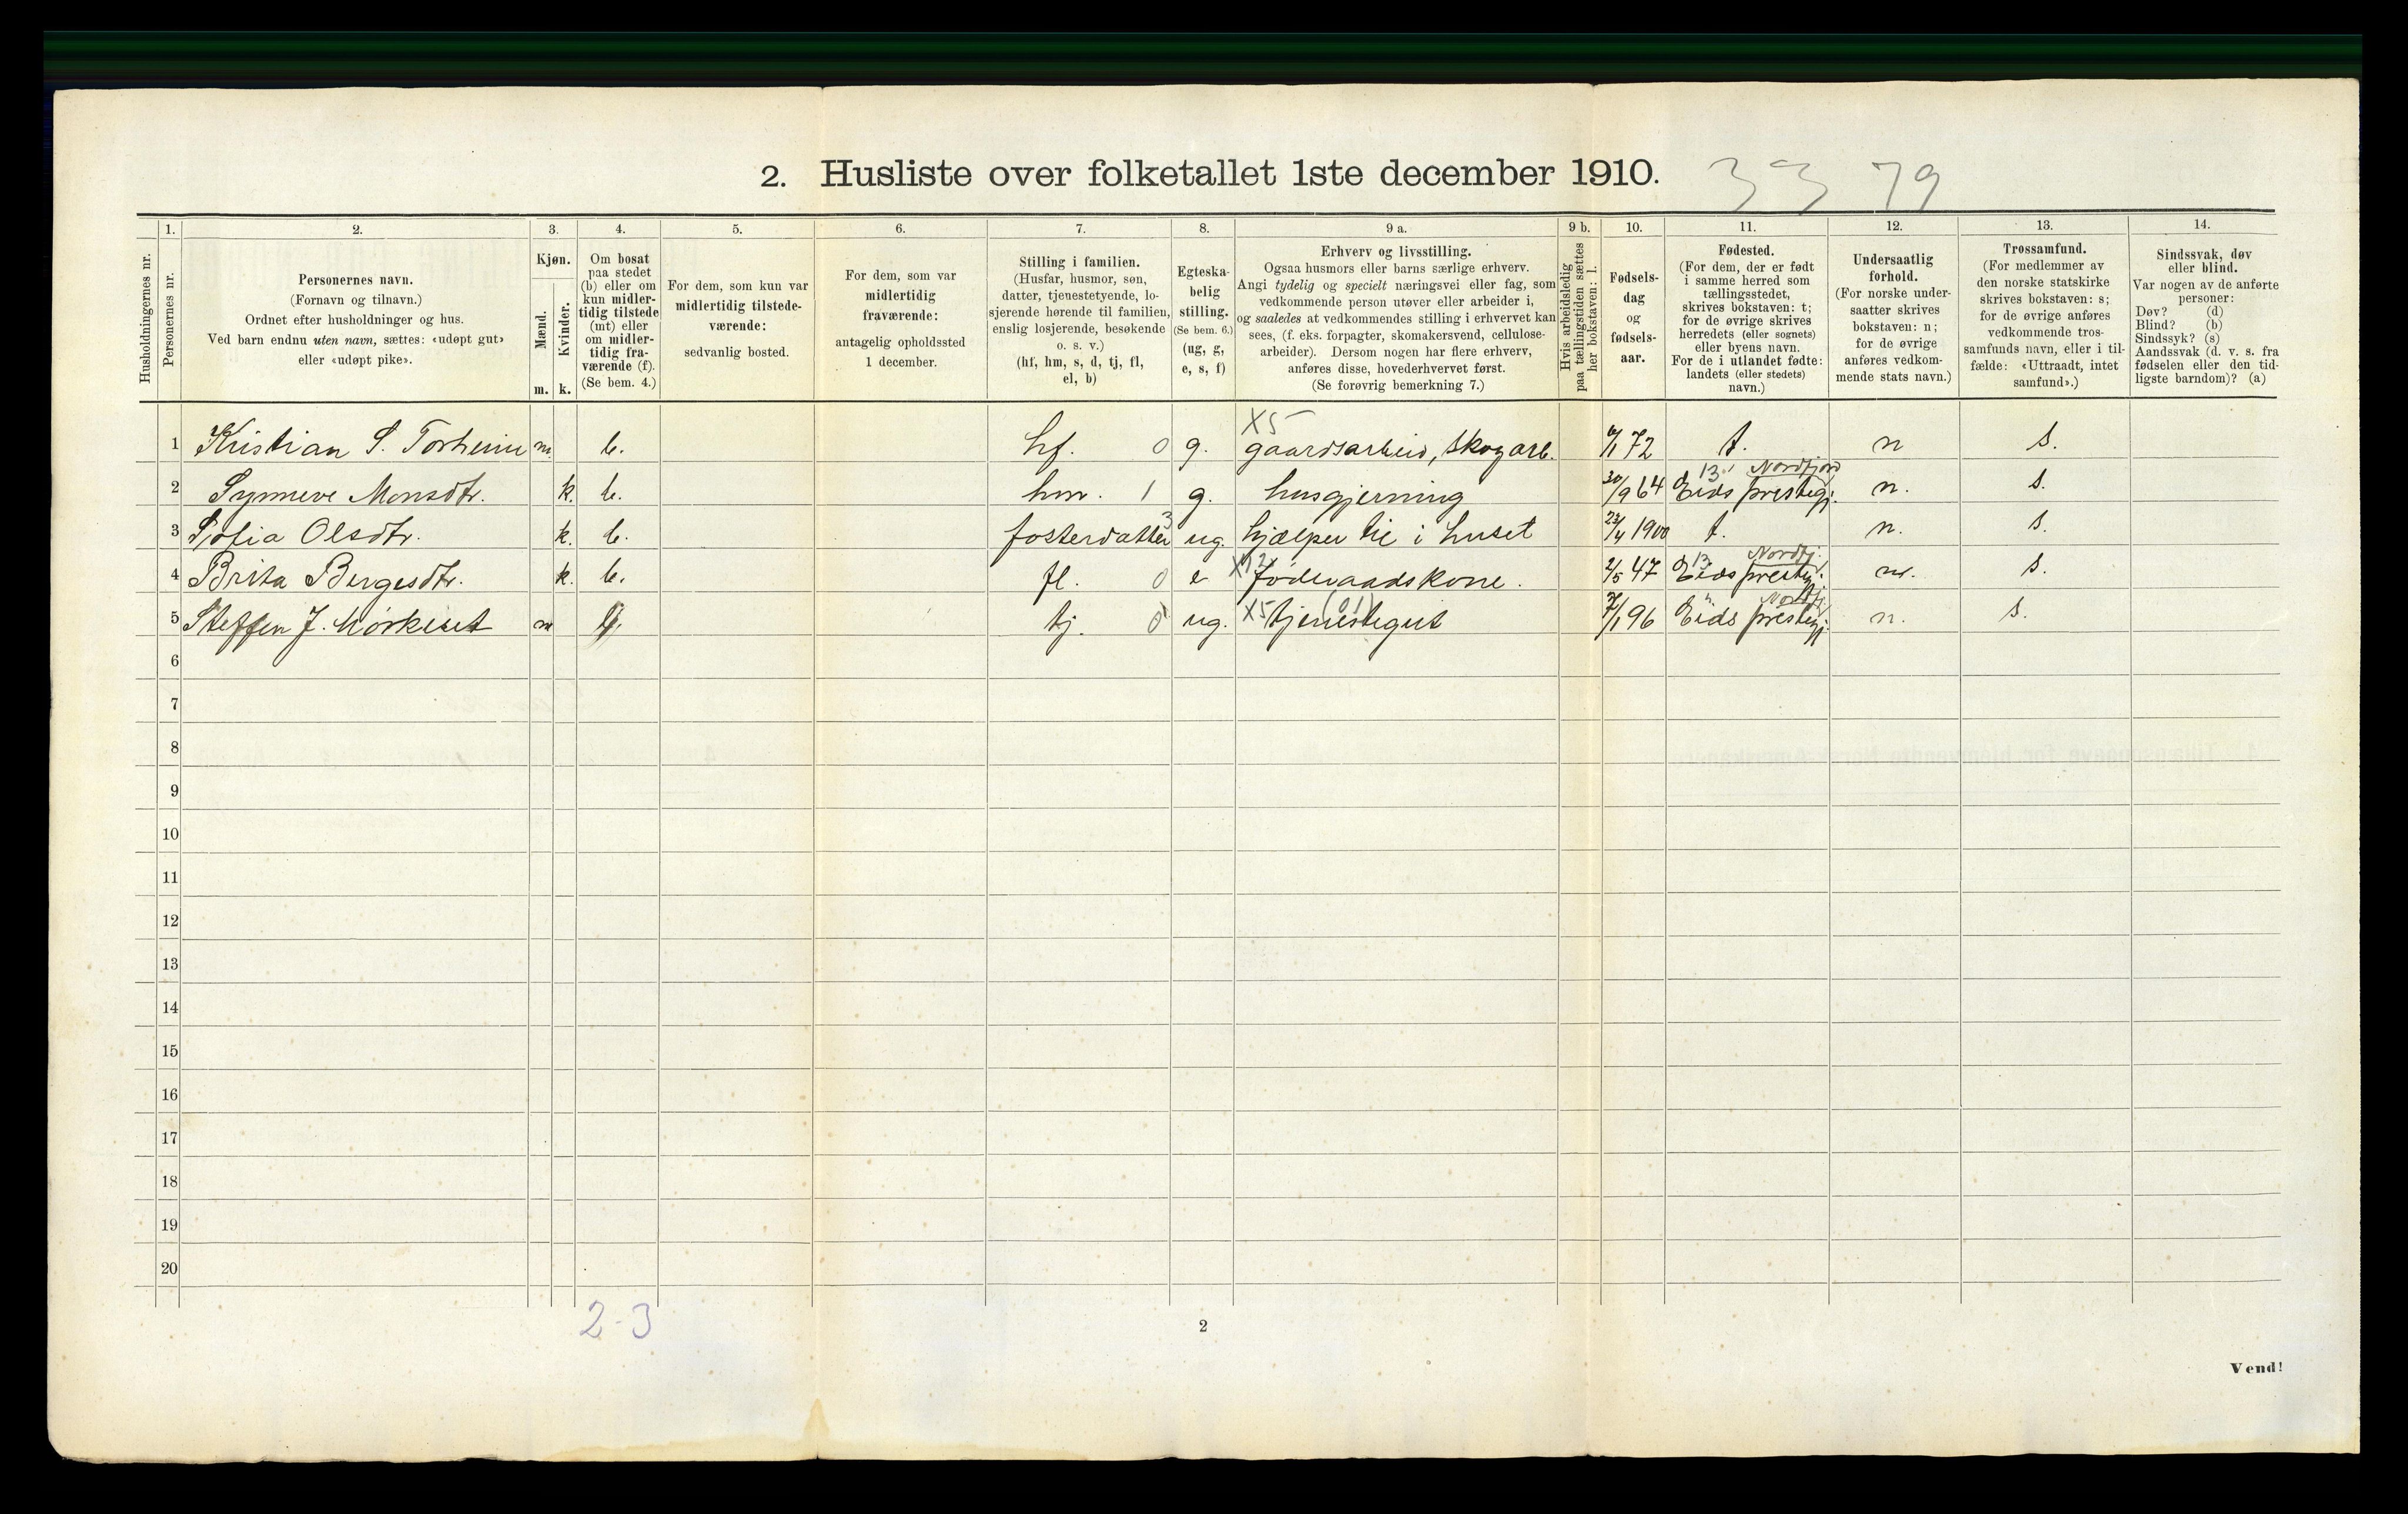 2. Husliste over folketallet 1ste december 1910. 33 79
1. 2. 3. 4. 5. 6. 7. 8. 9 a. 9 b. 10. 11. 12. 13. 14.
Husholdningernes nr.
Personernes nr.
Personernes navn.
(Fornavn og tilnavn.)
Ordnet efter husholdninger og hus.
Ved barn endnu uten navn, sættes: «udøpt gut»
eller «udøpt pike».
Kjøn.
Mænd.
Kvinder.
m. k.
Om bosat
paa stedet
(b) eller om
kun midler-
tidig tilstede
(mt) eller
om midler-
tidig fra-
værende (f).
(Se bem. 4.)
For dem, som kun var
midlertidig tilstede-
værende:
sedvanlig bosted.
For dem, som var
midlertidig
fraværende:
antagelig opholdssted
1 december.
Stilling i familien.
(Husfar, husmor, søn,
datter, tjenestetyende, lo-
sjerende hørende til familien,
enslig losjerende, besøkende
o. s. v.)
(hf, hm, s, d, tj, fl,
el, b)
Egteska-
belig
stilling.
(Se bem. 6.)
(ug, g,
e, s, f)
Erhverv og livsstilling.
Ogsaa husmors eller barns særlige erhverv.
Angi tydelig og specielt næringsvei eller fag, som
vedkommende person utøver eller arbeider i,
og saaledes at vedkommendes stilling i erhvervet kan
sees, (f. eks. forpagter, skomakersvend, cellulose-
arbeider). Dersom nogen har flere erhverv,
anføres disse, hovederhvervet først.
(Se forøvrig bemerkning 7.)
Hvis arbeidsledig
paa tællingstiden sættes
her bokstaven: l.
Fødsels-
dag
og
fødsels-
aar.
Fødested.
(For dem, der er født
i samme herred som
tællingsstedet,
skrives bokstaven: t;
for de øvrige skrives
herredets (eller sognets)
eller byens navn.
For de i utlandet fødte:
landets (eller stedets)
navn.)
Undersaatlig
forhold.
(For norske under-
saatter skrives
bokstaven: n;
for de øvrige
anføres vedkom-
mende stats navn.)
Trossamfund.
(For medlemmer av
den norske statskirke
skrives bokstaven: s;
for de øvrige anføres
vedkommende tros-
samfunds navn, eller i til-
fælde: «Uttraadt, intet
samfund».)
Sindssvak, døv
eller blind.
Var nogen av de anførte
personer:
Døv? (d)
Blind? (b)
Sindssyk? (s)
Aandssvak (d. v. s. fra
fødselen eller den tid-
ligste barndom)? (a)
X5
1 Kristian S. Torheim m. b. hf. 0 g. gaardsarbeid, skogarb. 72 t. n s.
13 Nordfjord
2 Synneve Monsdtr. k. b. hm. 1 g. husgjerning 20/9 64 Eids prestegj. n. s.
3 Sofia Olsdtr. k. b. fosterdatter 3 ug. hjælper til i huset 23/4 1900 t. n. s.
13 Nordfj.
4 Brita Bergesdtr. k. b. fl. 0 e X12 föderaadskone. 2/5 47 Eids prestegj. n. s.
Nordfj.
5 Steffen J. Mörkeset m b. tj. 0 ug. X5 (01) tjenestegut 7/1 96 Eids prestegj. n. s.
6
7
8
9
10
11
12
13
14
15
16
17
18
19
20
2-3
2
Vend!